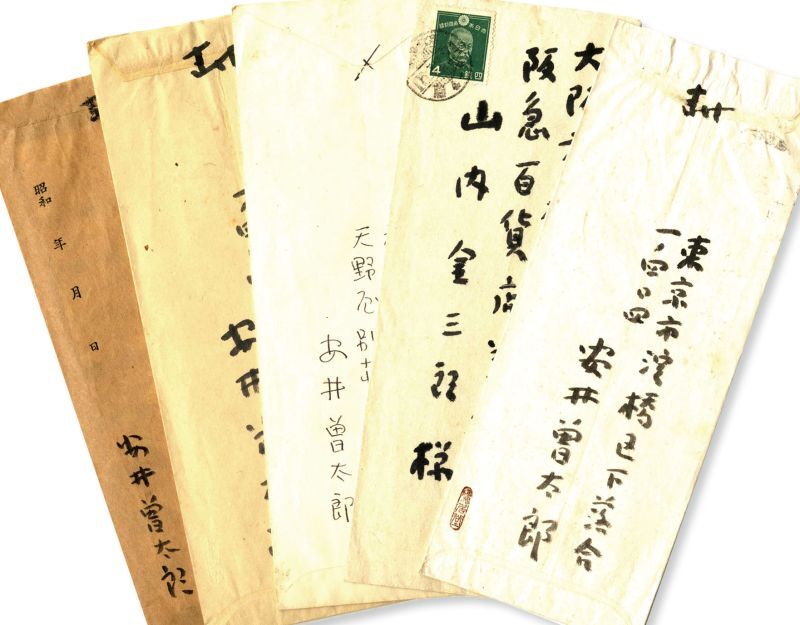 封
東京市淀橋区下落合
一ノ四〇四
安井曽太郎
大阪
阪急百貨店
山内金三郎様
4 銭四
〆
天野屋別荘
安井曽太郎
封
安井曽太
昭和 年 月 日
安井曽太郎